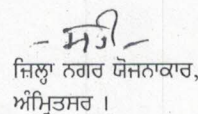 - ਸਹੀ -
ਜ਼ਿਲ੍ਹਾ ਨਗਰ ਯੋਜਨਾਕਾਰ,
ਅੰਮ੍ਰਿਤਸਰ ।